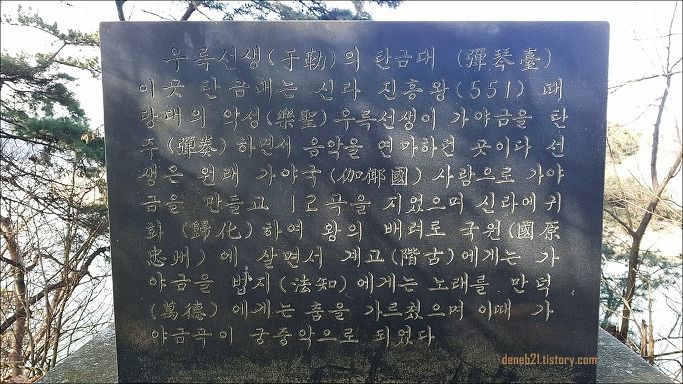 우륵선생(于勒)의 탄금대 (彈琴臺)
이곳 탄금대는 신라 진흥왕(551) 때
당대의 악성(樂聖)우륵선생이 가야금을 탄
주(彈奏) 하면서 음악을 연마하던 곳이다 선
생은 원래 가야국(伽倻國) 사람으로 가야
금을 만들고 12곡을 지었으며 신라에 귀
화 (歸化)하여 왕의 배려로 국원(國原
忠州) 에 살면서 계고(階古)에게는 가
야금을 법지(法知)에게는 노래를 만덕
(萬德) 에게는 춤을 가르쳤으며 이때 가
야금곡이 궁중악으로 되었다
deneb21.tistory.com